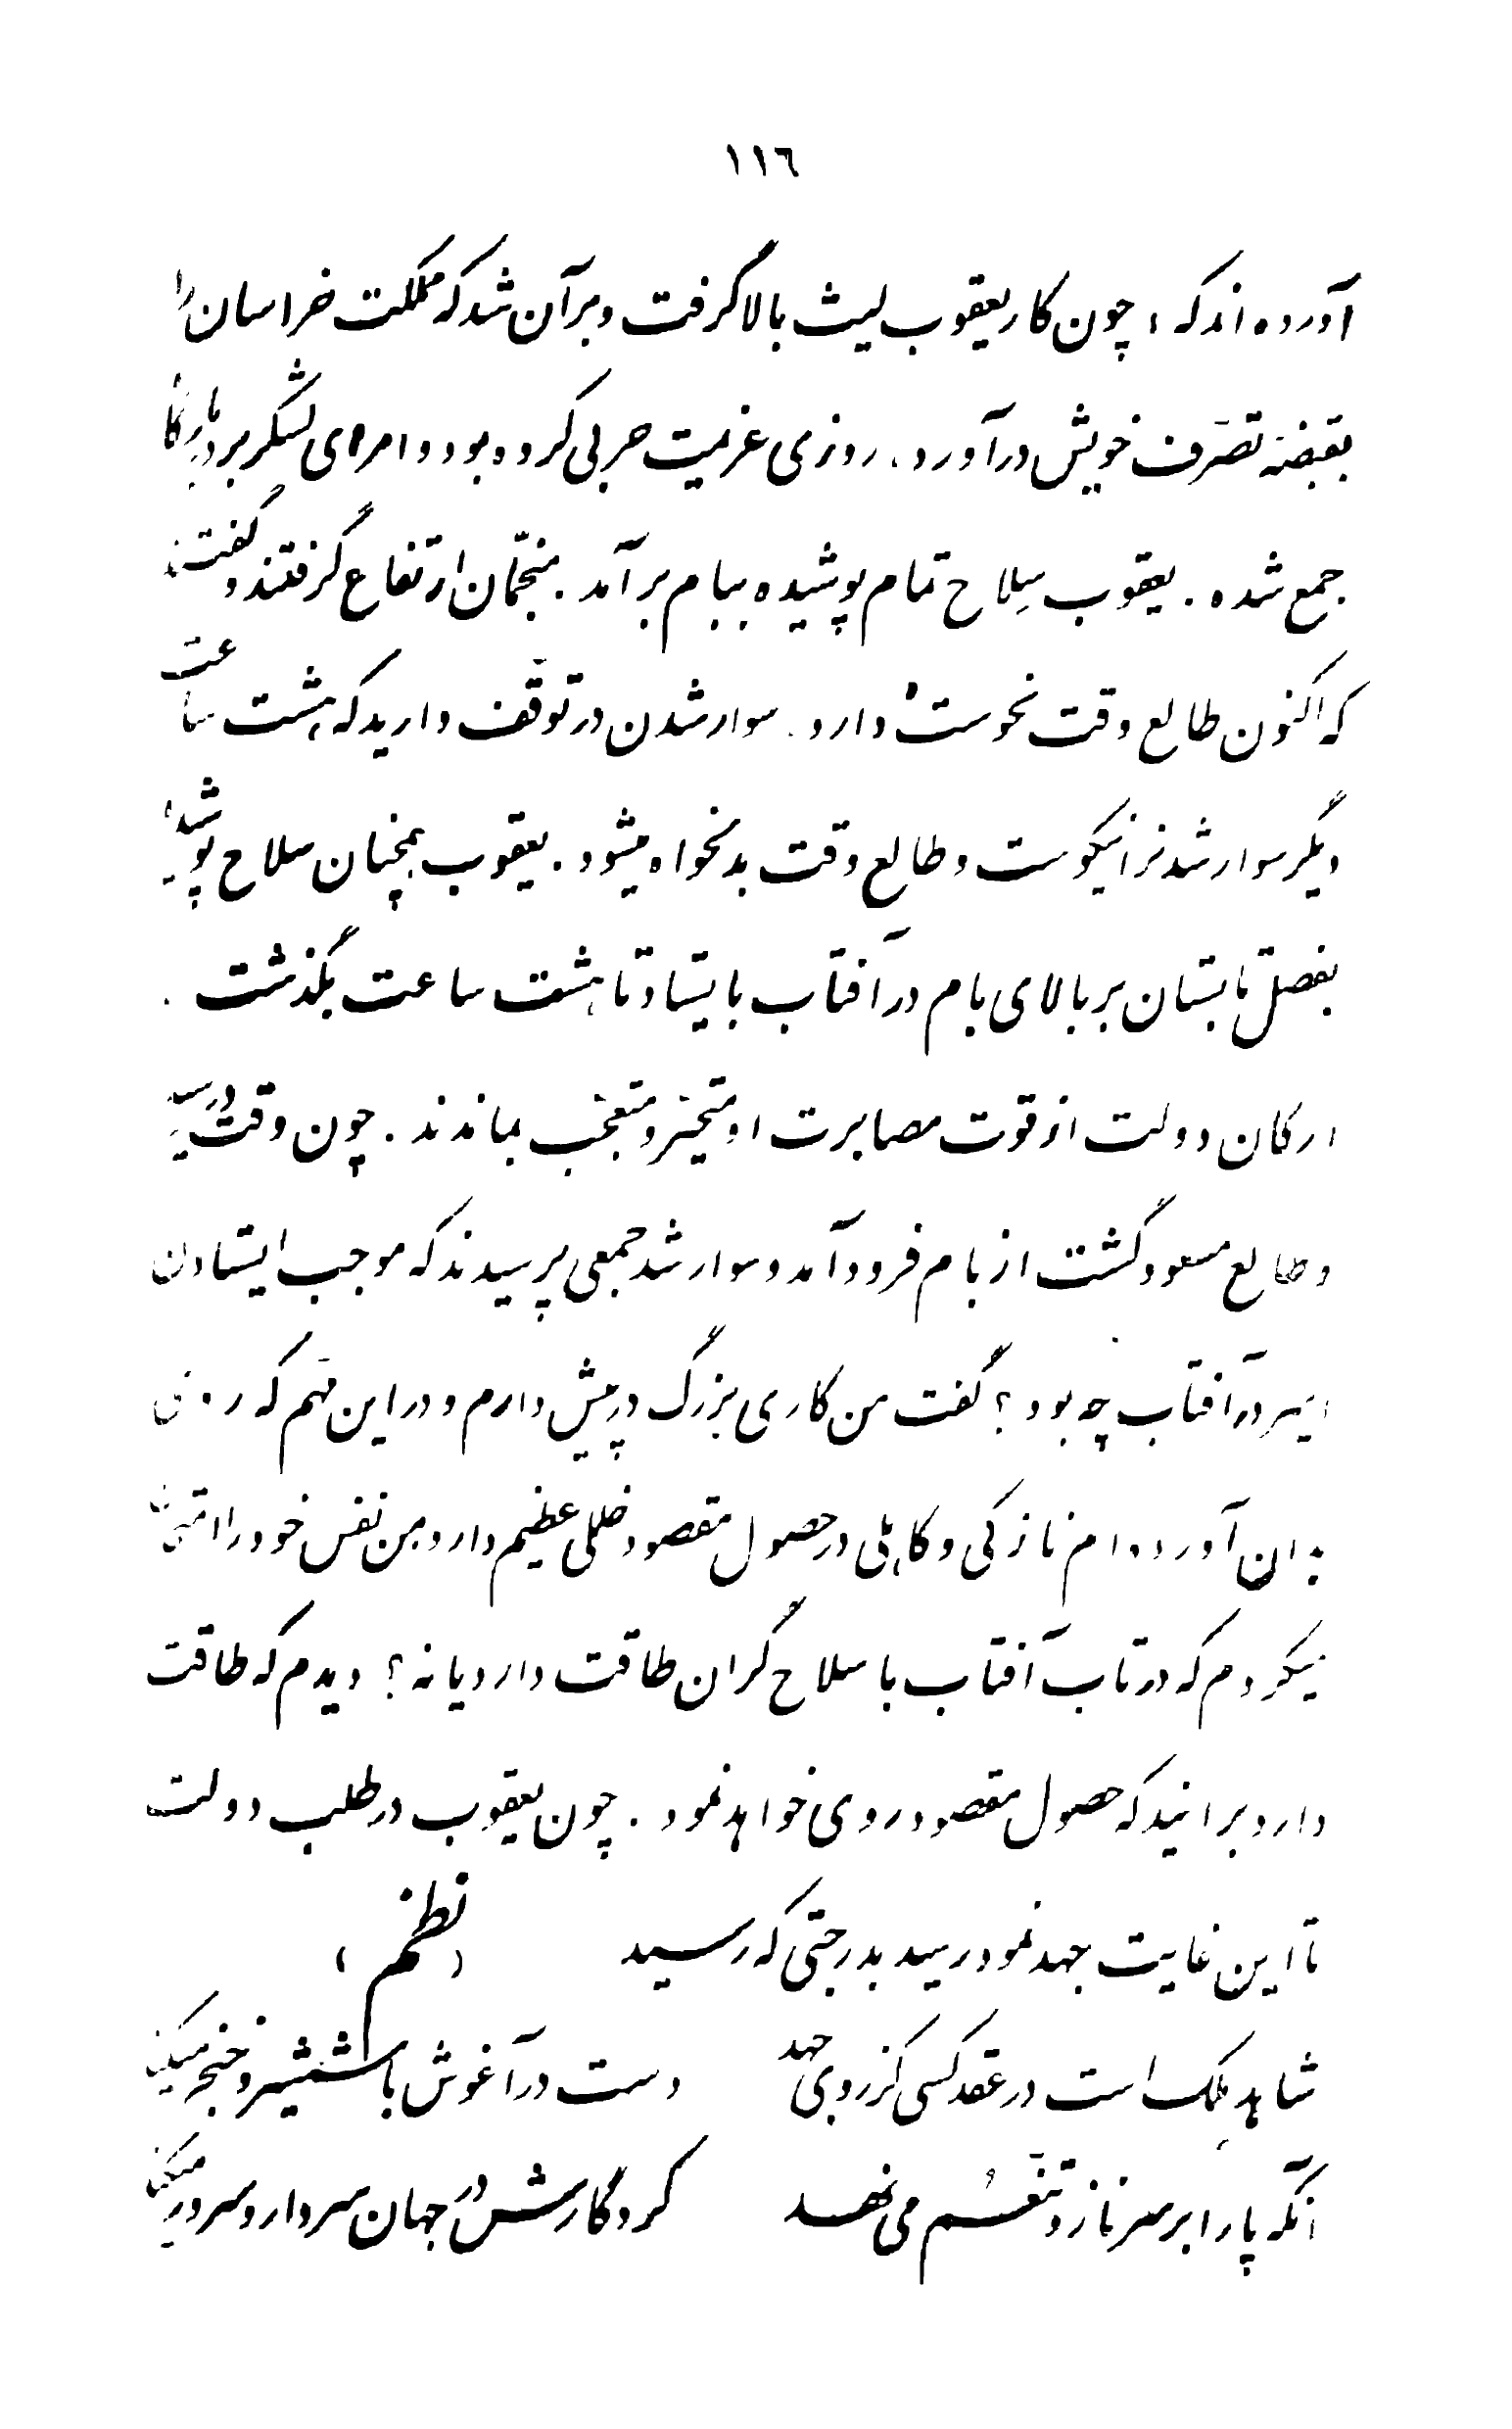 ١١٦
آورده‌اند که، چون کار یعقوب لیث بالا گرفت و بر آن شد که مملکت خراسان را
بقبضهٔ تصرّف خویش درآورد، روزی عزیمت حربی کرده بود و امرای لشگر بر دربارگاه
جمع شده. یعقوب سِلاح تمام پوشیده ببام برآمد. منجّمان ارتفاع گرفتند و گفتند
که اکنون طالع وقت نحوستْ دارد. سوار شدن در توقّف دارید که هشت ساعت
دیگر سوار شدنرا نیکوست و طالع وقت بدنخواه میشود. یعقوب همچنان سلاح پوشیده
بفصل تابستان بر بالای بام در آفتاب بایستاد تا هشت ساعت بگذشت.
ارکان دولت از قوت مصابرت او متحیّر و متعجّب بماندند. چون وقت دررسید
و طالع مسعود گشت از بام فرود آمد و سوار شد جمعی پرسیدند که موجب ایستادن
امیر در آفتاب چه بود؟ گفت من کاری بزرگ در پیش دارم و در این مهّم که روی
بدان آورده‌ام نازکی و کاهلی در حصول مقصود خللی عظیم دارد و من نفس خود را امتحان
میکردم که در تاب آفتاب با سلاح گران طاقت دارد یا نه؟ دیدم که طاقت
دارد برانید که حصول مقصود روی خواهد نمود. چون یعقوب در طلب دولت
تا این غایت جهد نمود رسید بدرجتی که رسید (نظم)
شاهد ملک است در عقد کسی کز روی جهد دست در آغوش با شمشیر و خنجر میکند
آنکه پا را بر سر ناز و تنعّم می نهد کردگارش در جهان سردار و سرور میکند